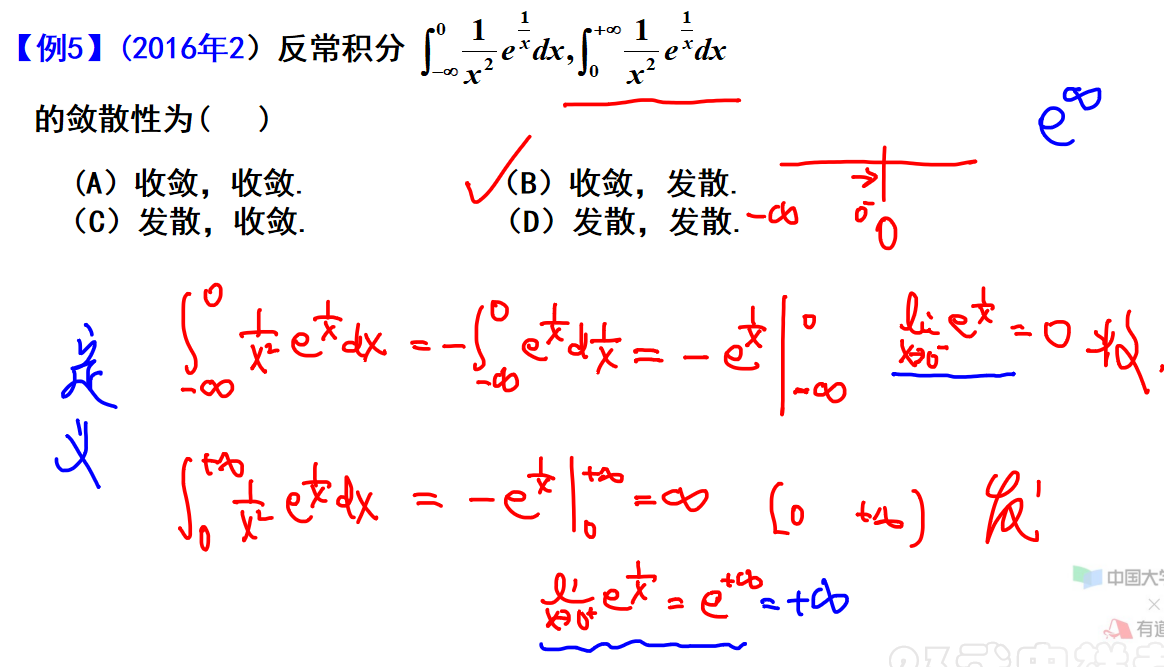 【例5】(2016年2) 反常积分 ∫_{-∞}^{0} 1/x² e^{1/x} dx, ∫_{0}^{+∞} 1/x² e^{1/x} dx
e^∞
的敛散性为( )
(A) 收敛, 收敛. (B) 收敛, 发散.
(C) 发散, 收敛. (D) 发散, 发散.
-∞ 0⁻ 0
∫_{-∞}^{0} 1/x² e^{1/x} dx = -∫_{-∞}^{0} e^{1/x} d 1/x = -e^{1/x} |_{-∞}^{0} lim_{x→0⁻} e^{1/x} = 0 收.
定义
∫_{0}^{+∞} 1/x² e^{1/x} dx = -e^{1/x} |_{0}^{+∞} = ∞ [0 +∞) 发
lim_{x→0⁺} e^{1/x} = e^{+∞} = +∞
中国大学
有道